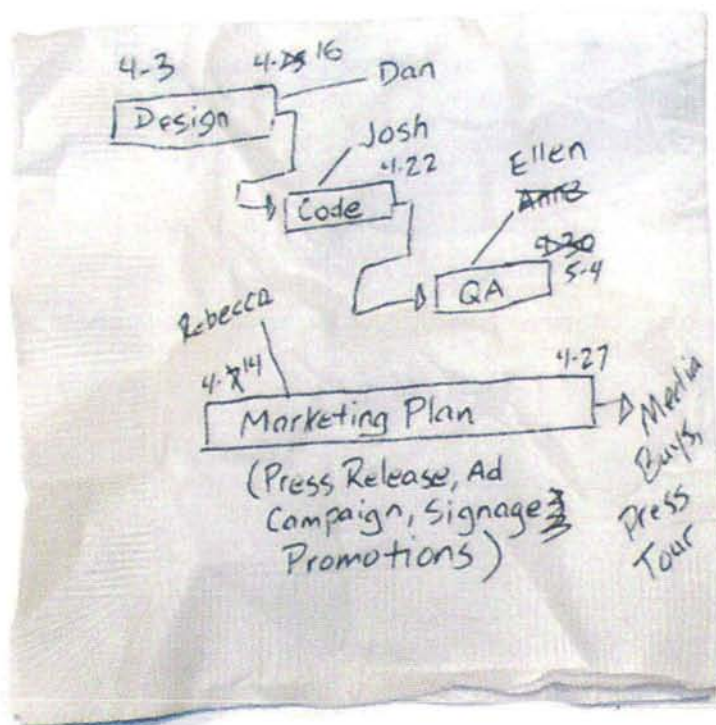 4-3 4-16
Dan
Design
Josh
4-22
Ellen
Code
4-30
5-4
QA
Rebecca
4-14
4-27
Marketing Plan
Media
Buys,
Press
Tour
(Press Release, Ad
Campaign, Signage
Promotions)